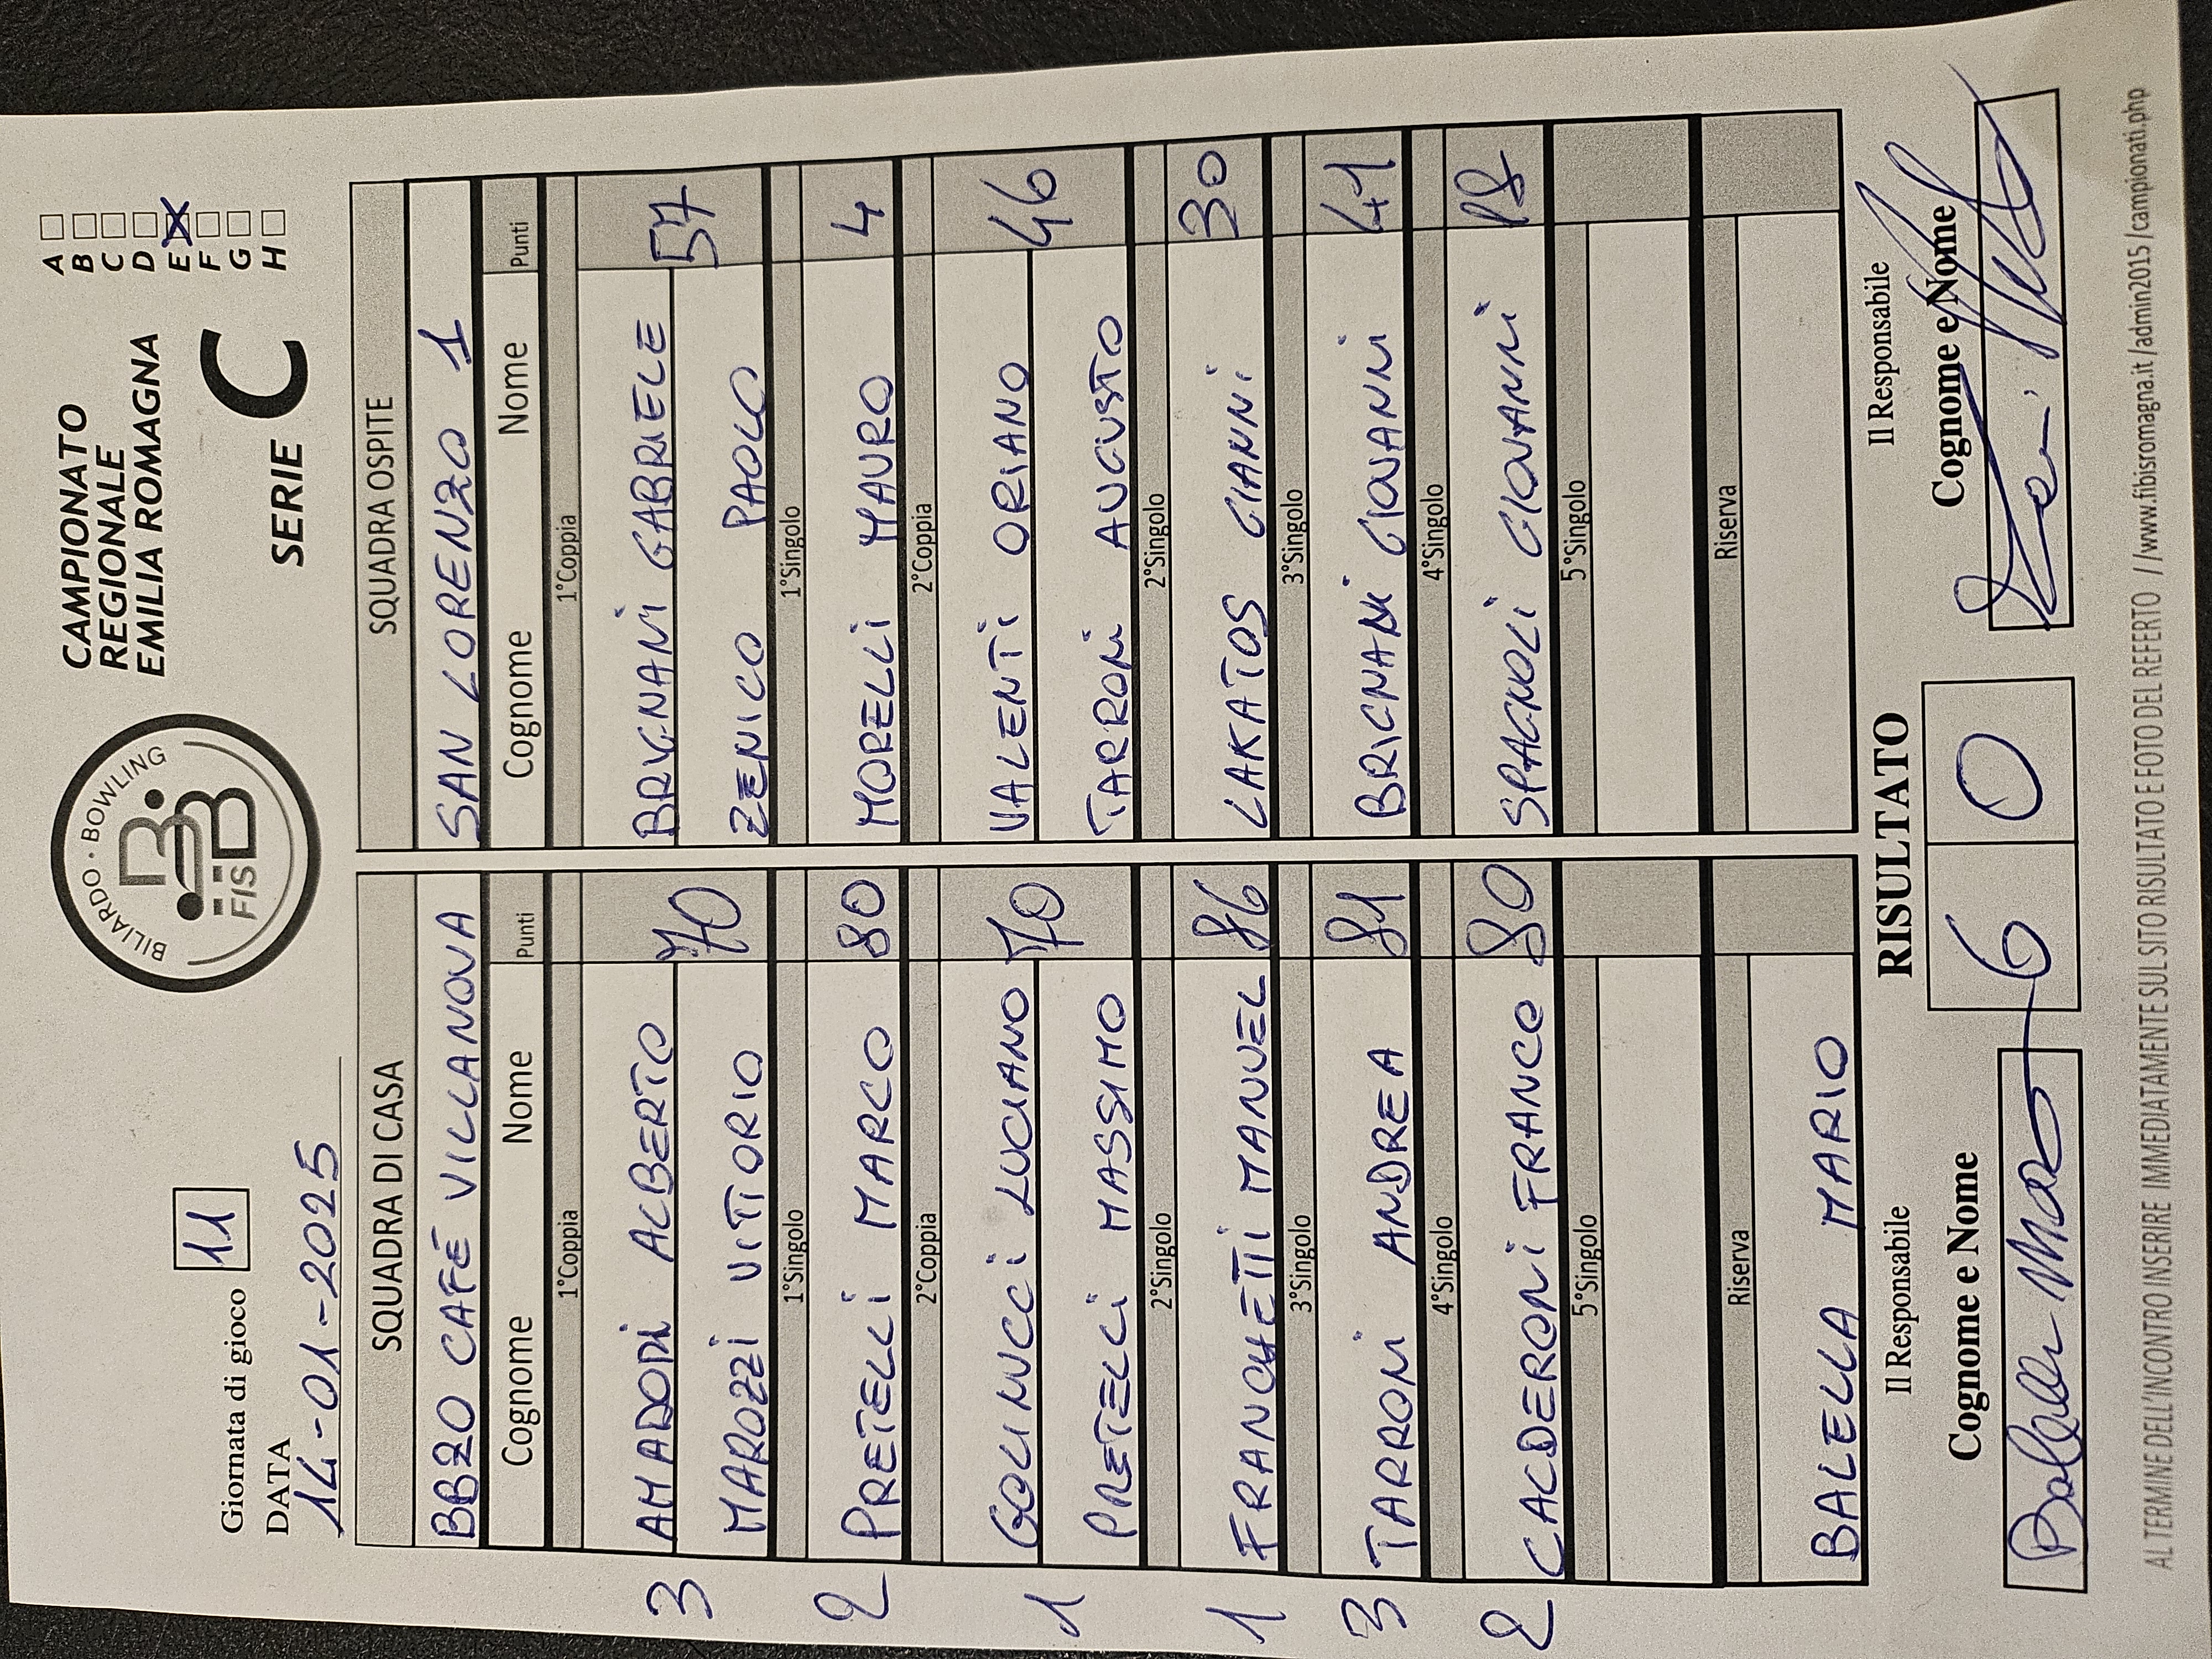 Giornata di gioco 11
DATA
14-01-2025
BILIARDO · BOWLING
FISBB
CAMPIONATO
REGIONALE
EMILIA ROMAGNA
SERIE C
A
B
C
D
E X
F
G
H
SQUADRA DI CASA SQUADRA OSPITE
BBZO CAFÉ VILLANOVA SAN LORENZO 1
Cognome Nome Punti Cognome Nome Punti
1°Coppia 1°Coppia
3 AMADORI ALBERTO 70 BRUGNANI GABRIELE 57
MAROZZI VITTORIO ZENICO PAOLO
1°Singolo 1°Singolo
2 PRETELLI MARCO 80 MORELLI MAURO 4
2°Coppia 2°Coppia
1 GOLINUCCI LUCIANO 70 VALENTI ORIANO 46
PRETELLI MASSIMO TARRONI AUGUSTO
2°Singolo 2°Singolo
1 FRANCHETTI MANUEL 86 LAKATOS GIANNI 30
3°Singolo 3°Singolo
3 TARRONI ANDREA 81 BRIGNANI GIOVANNI 41
4°Singolo 4°Singolo
2 CALDERONI FRANCO 80 SPAGNOLI GIOVANNI 18
5°Singolo 5°Singolo
Riserva Riserva
BALELLA MARIO
Il Responsabile RISULTATO Il Responsabile
Cognome e Nome 6 0 Cognome e Nome
Balella Mario
AL TERMINE DELL'INCONTRO INSERIRE IMMEDIATAMENTE SUL SITO RISULTATO E FOTO DEL REFERTO //www.fibisromagna.it/admin2015/campionati.php